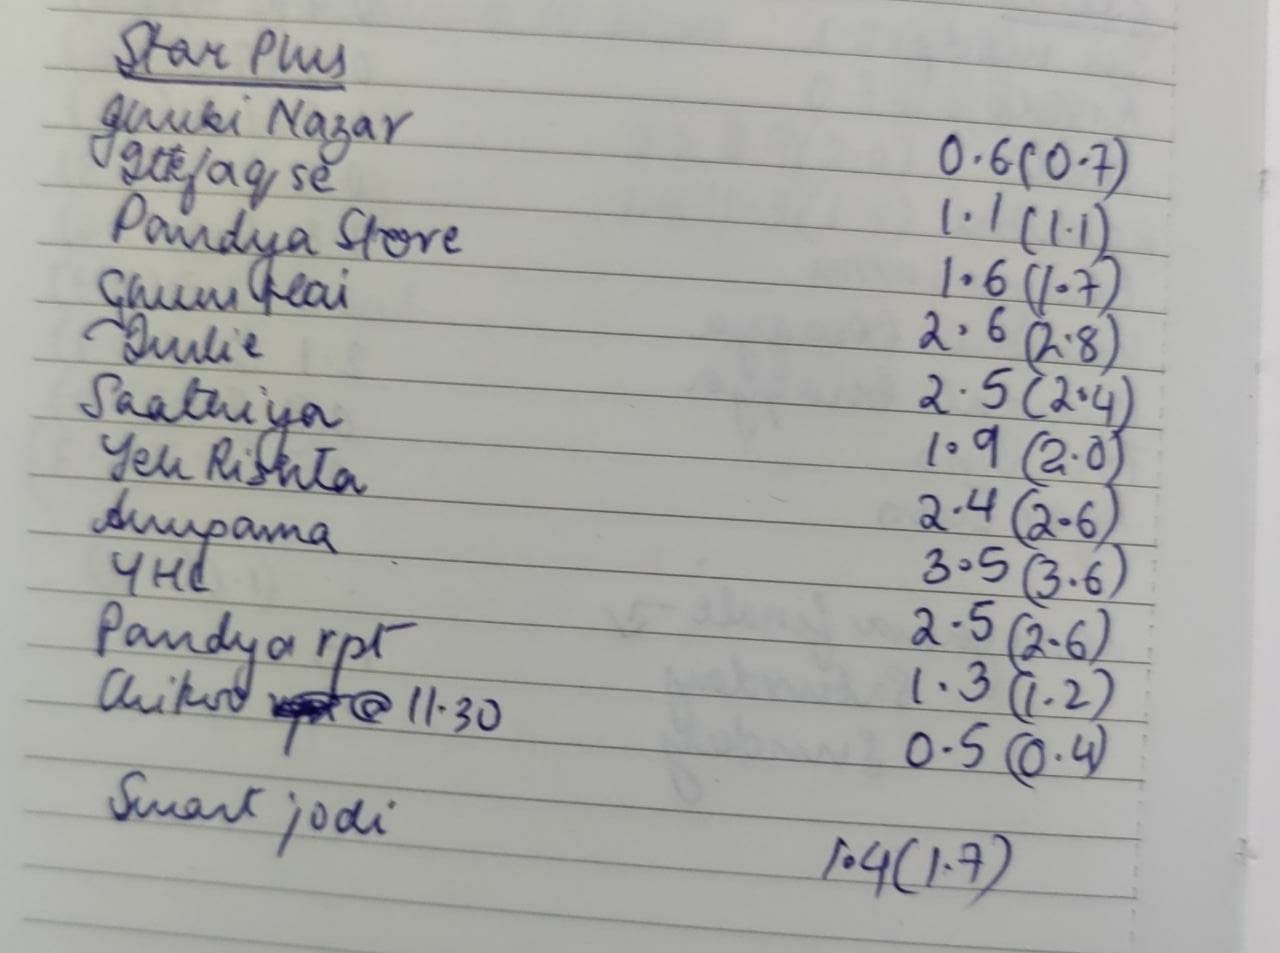 Star Plus
gumki Nazar 0.6(0.7)
se 1.1(1.1)
Pandya Store 1.6(1.7)
Ghum Hai 2.6(2.8)
Imlie 2.5(2.4)
Saathiya 1.9(2.0)
Yeh Rishta 2.4(2.6)
Anupama 3.5(3.6)
YHC 2.5(2.6)
Pandya rpt 1.3(1.2)
@ 11.30 0.5(0.4)
Smart jodi 1.4(1.7)